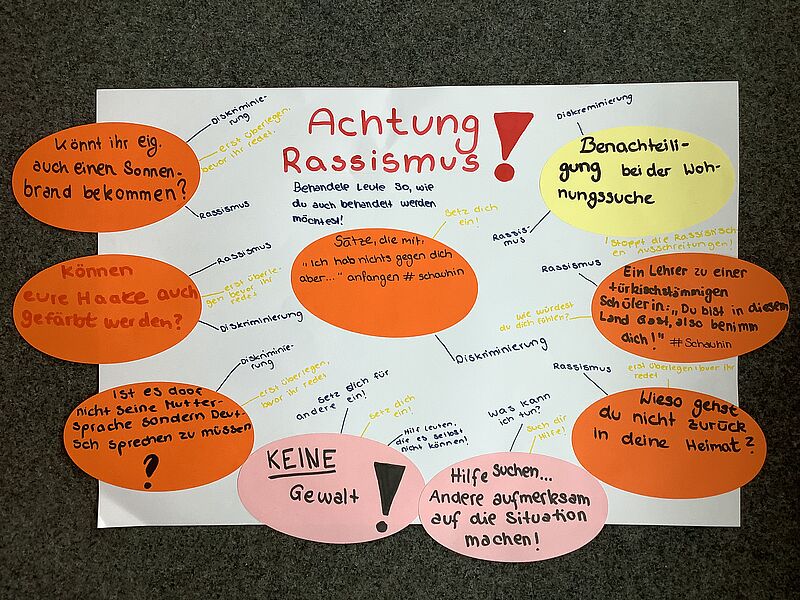 Achtung
Rassismus!
Behandele Leute so, wie
du auch behandelt werden
möchtest!
Diskriminie-
rung
Könnt ihr eig.
auch einen Sonnen-
brand bekommen?
erst überlegen,
bevor ihr redet.
Rassismus
Diskreminierung
Benachteili-
gung bei der Woh-
nungssuche
Rassis-
mus
Setz dich
ein!
Sätze, die mit:
"Ich hab nichts gegen dich
aber..." anfangen # schauhin
Diskriminierung
Rassismus
Können
eure Haake auch
gefärbt werden?
erst überle-
gen bevor ihr
redet
Diskriminierung
!Stoppt die Rassistisch-
en Ausschreitungen!
Rassismus
Ein Lehrer zu einer
türkischstämmigen
Schülerin: „Du bist in diesem
Land Gast, also benimm
dich!" # Schauhin
wie würdest
du dich fühlen?
Diskriminie-
rung
Ist es doof
nicht seine Mutter-
sprache sondern Deut-
sch sprechen zu müssen
?
erst überlegen,
bevor ihr redet
Rassismus
erst überlegen bevor ihr
redet
Wieso gehst
du nicht zurück
in deine Heimat?
setz dich für
andere ein!
Setz dich
ein!
Hilf Leuten,
die es selbst
nicht können!
KEINE
Gewalt !
Was kann
ich tun?
Such dir
Hilfe!
Hilfe suchen...
Andere aufmerksam
auf die Situation
machen!